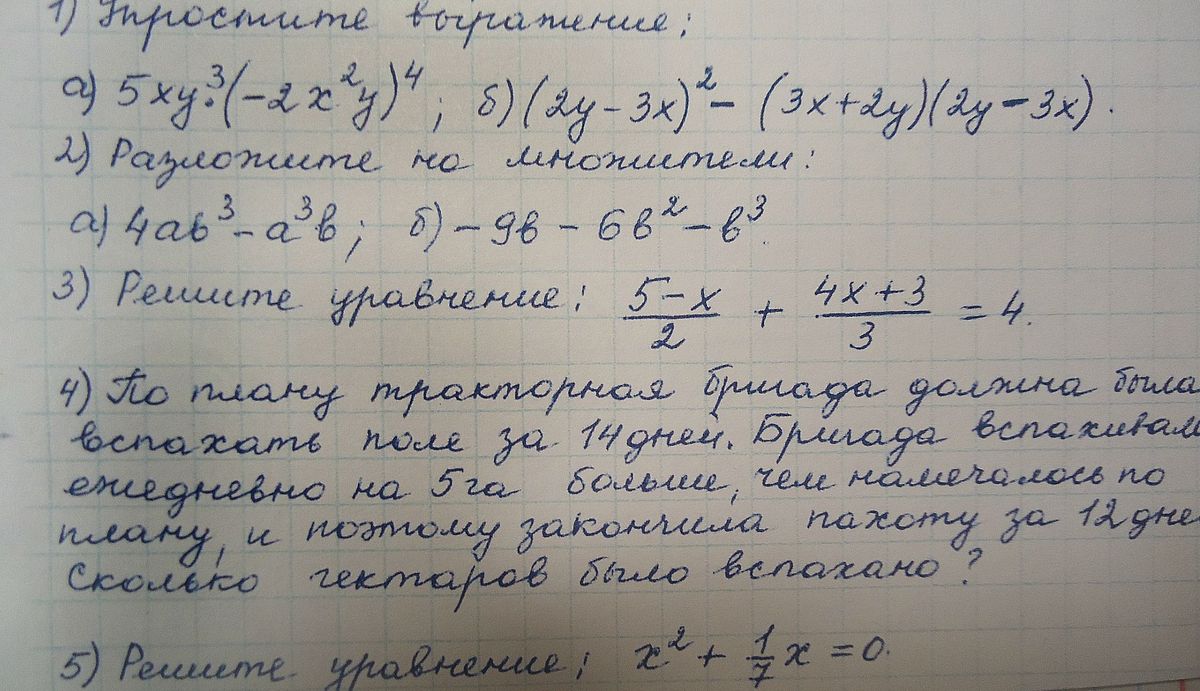 1) Упростите выражение:
а) 5xy³·(-2x²y)⁴; б) (2y-3x)² - (3x+2y)(2y-3x).
2) Разложите на множители:
а) 4ав³-а³в; б) -9в-6в²-в³.
3) Решите уравнение: (5-x)/2 + (4x+3)/3 = 4.
4) По плану тракторная бригада должна была
вспахать поле за 14 дней. Бригада вспахивала
ежедневно на 5 га больше, чем намечалось по
плану, и поэтому закончила пахоту за 12 дне
Сколько гектаров было вспахано?
5) Решите уравнение: x² + 1/7 x = 0.